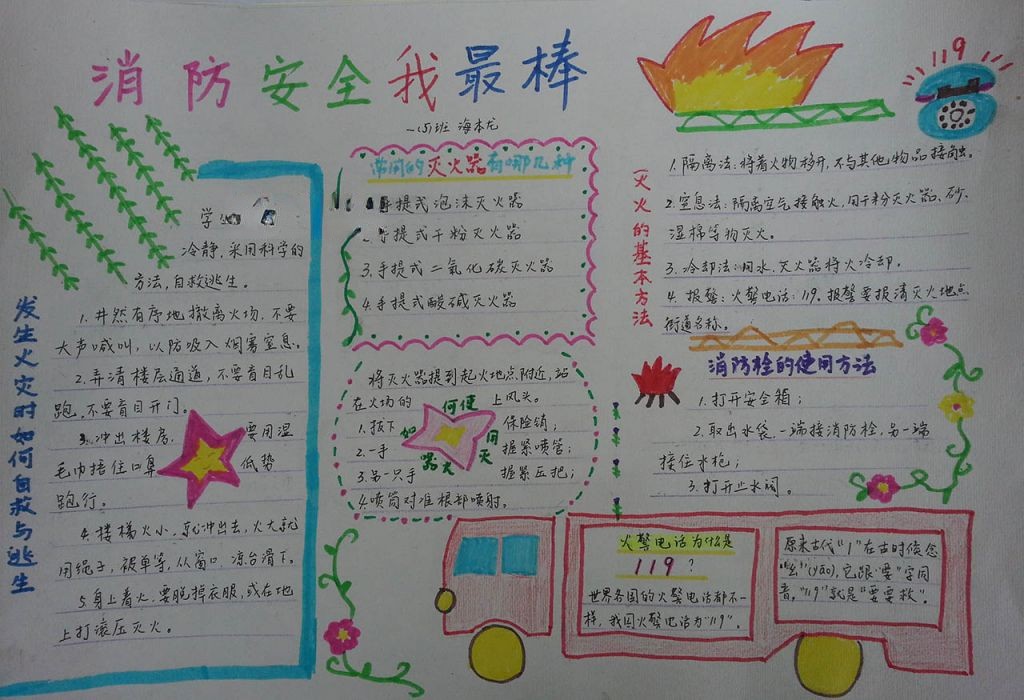 消防安全我最棒
一(5)班 海本龙
119
发生火灾时如何自救与逃生
学
冷静,采用科学的
方法,自救逃生。
1.井然有序地撤离火场,不要
大声喊叫,以防吸入烟雾窒息。
2.弄清楼层通道,不要盲目乱
跑,不要盲目开门。
3.冲出楼房,要用湿
毛巾捂住口鼻低势
跑行。
4.楼梯火小,就冲出去,火大就
用绳子,被单等,从窗口凉台滑下。
5.身上着火,要脱掉衣服,或在地
上打滚压灭火。
常闻的灭火器有哪几种
手提式泡沫灭火器
手提式干粉灭火器
3.手提式二氧化碳灭火器
4.手提式酸碱灭火器
如何使用灭火器
将灭火器提到起火地点附近,站
在火场的上风头。
1.拔下保险销;
2.一手握紧喷管;
3.另一只手握紧压把;
4.喷筒对准根部喷射。
灭火的基本方法
1.隔离法:将着火物移开,不与其他物品接触。
2.窒息法:隔离空气接触火,用干粉灭火器、砂、
湿棉等物灭火。
3.冷却法:用水、灭火器将火冷却。
4.报警:火警电话:119。报警要报清灭火地点
街道名称。
消防栓的使用方法
1.打开安全箱;
2.取出水袋,一端接消防栓,另一端
接住水枪;
3.打开止水阀。
火警电话为什是
119?
世界各国的火警电话都不一
样,我国火警电话为"119"。
原来古代"1"在古时候念
"幺"(yāo),它跟"要"字同
音。"119"就是"要要救"。